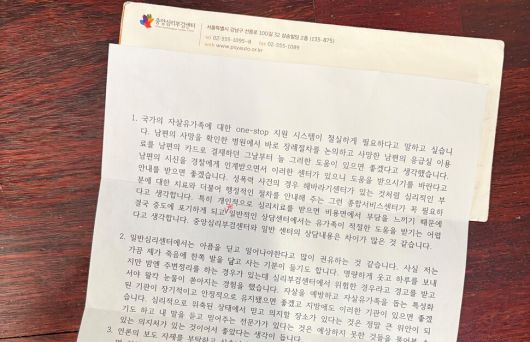 중앙심리부검센터
서울특별시 강남구 선릉로 100길 32 삼송빌딩 2층 (135-875)
tel 02-555-1095~8 fax 02-555-1089
web www.psyauto.or.kr
1. 국가의 자살유가족에 대한 one-stop 지원 시스템이 절실하게 필요하다고 말하고 싶습니
다. 남편의 사망을 확인한 병원에서 바로 장례절차를 논의하고 사망한 남편의 응급실 이용
료를 남편의 카드로 결재하던 그날부터 늘 그러한 도움이 있으면 좋겠다고 생각했습니다.
남편의 시신을 경찰에게 인계받으면서 이러한 센터가 있으니 도움을 받으시기를 바란다고
안내를 받으면 좋겠습니다. 성폭력 사건의 경우 해바라기센터가 있는 것처럼 심리적인 부
분에 대한 치료와 더불어 행정적인 절차를 안내해 주는 그런 통합서비스센터가 꼭 필요하
다고 생각합니다. 특히 개인적으로 심리치료를 받으면 비용면에서 부담을 느끼기 때문에
결국 중도에 포기하게 되고 일반적인 상담센터에서는 유가족이 적절한 도움을 받기는 어렵
다고 생각합니다. 중앙심리부검센터와 일반 센터의 상담내용은 차이가 많은 것 같습니다.
2. 일반심리센터에서는 아픔을 딛고 일어나야한다고 많이 권유하는 것 같습니다. 사실 저는
가끔 제가 죽음에 한쪽 발을 담그고 사는 기분이 들기도 합니다. 명랑하게 웃고 하루를 보내
지만 밤엔 주변정리를 하는 경우가 있는데 심리부검센터에서 위험한 경우라고 경고를 받고
서야 왈칵 눈물이 쏟아지는 경험을 했습니다. 자살을 예방하고 자살유가족을 돕는 특성화
된 기관이 장기적이고 안정적으로 유지됐으면 좋겠고 지방에도 이러한 기관이 있으면 좋겠
습니다. 심리적으로 위축된 상태에서 믿고 의지할 장소가 있다는 것은 정말 큰 위안이 되
기도 하고 내 말을 듣고 믿어주는 전문가가 있다는 것은 예상하지 못한 것들을 풀어볼 수
있는 의지처가 있는 것이어서 좋았다는 생각이 듭니다.
3. 언론의 보도 자제를 부탁하고